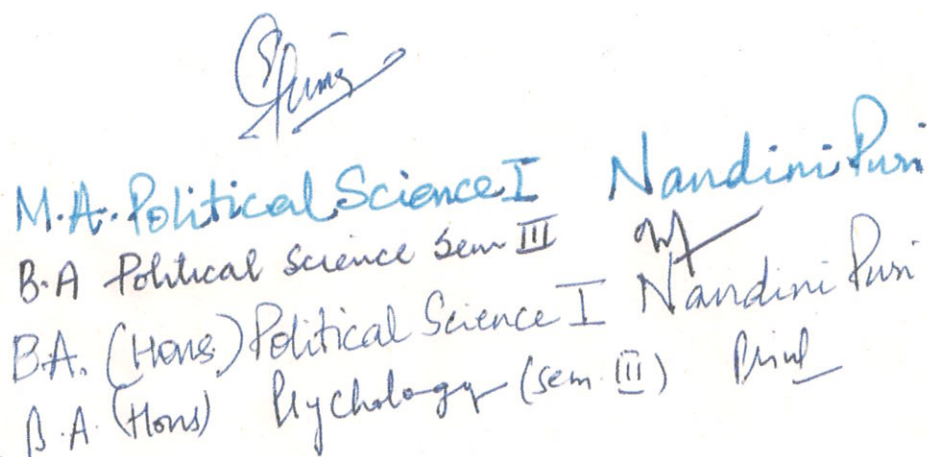 M.A. Political Science I Nandini Puri
B.A Political Science Sem III
B.A. (Hons.) Political Science I Nandini Puri
B.A. (Hons) Psychology (Sem. III)